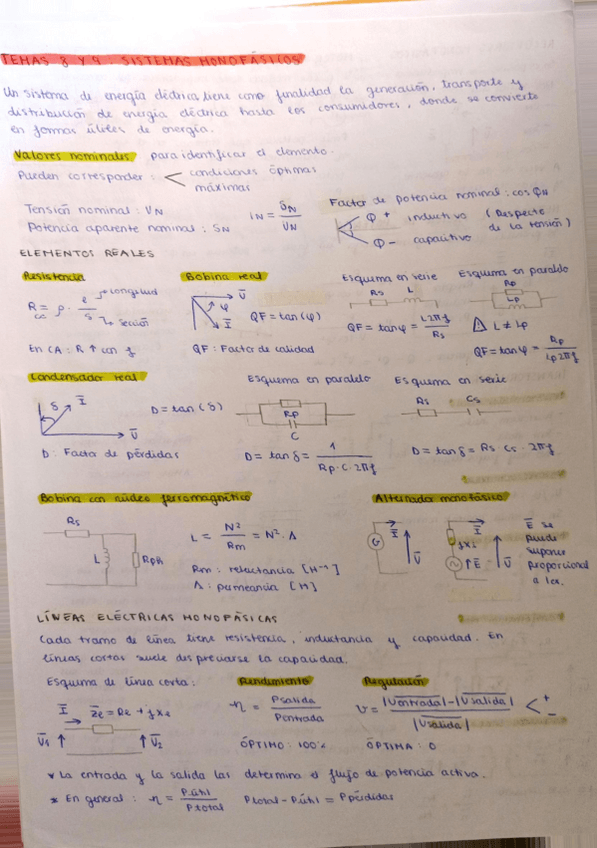 TEMAS 3 Y 4: SISTEMAS MONOFÁSICOS
Un sistema de energía eléctrica tiene como finalidad la generación, transporte y
distribución de energía eléctrica hasta los consumidores, donde se convierte
en formas útiles de energía.
Valores nominales para identificar el elemento.
Pueden corresponder: < condiciones óptimas
máximas
Tensión nominal: UN
Potencia aparente nominal: SN
IN = SN / UN
Factor de potencia nominal: cos φN
φ + inductivo (Respecto
φ - capacitivo de la tensión)
ELEMENTOS REALES
Resistencia
R = ρ · l / S
CC
longitud
sección
En CA: R ↑ con f
Bobina real
U
φ
I
QF = tan(φ)
QF: Factor de calidad
Esquema en serie
Rs L
QF = tan φ = L2πf / Rs
Esquema en paralelo
Rp
Lp
L ≠ Lp
QF = tan φ = Rp / Lp2πf
Condensador real
δ I
U
D = tan(δ)
D: Factor de pérdidas
Esquema en paralelo
Rp
C
D = tan δ = 1 / Rp·C·2πf
Esquema en serie
Rs Cs
D = tan δ = Rs · Cs · 2πf
Bobina con núcleo ferromagnético
Rs
L
RPh
L = N² / Rm = N² · Λ
Rm: reluctancia [H⁻¹]
Λ: permeancia [H]
Alternador monofásico
G
I
U
jXs
I
E
U
E se
puede
suponer
proporcional
LÍNEAS ELÉCTRICAS MONOFÁSICAS
Cada tramo de línea tiene resistencia, inductancia y capacidad. En
líneas cortas suele despreciarse la capacidad.
Esquema de línea corta:
I Ze = Re + jXe
U1 ↑ ↑ U2
Rendimiento
η = Psalida / Pentrada
ÓPTIMO: 100%
Regulación
υ = |Uentrada| - |Usalida| / |Usalida| < + -
ÓPTIMA: 0
* La entrada y la salida las determina el flujo de potencia activa.
* En general: η = P.útil / Ptotal Ptotal - P.útil = Ppérdidas